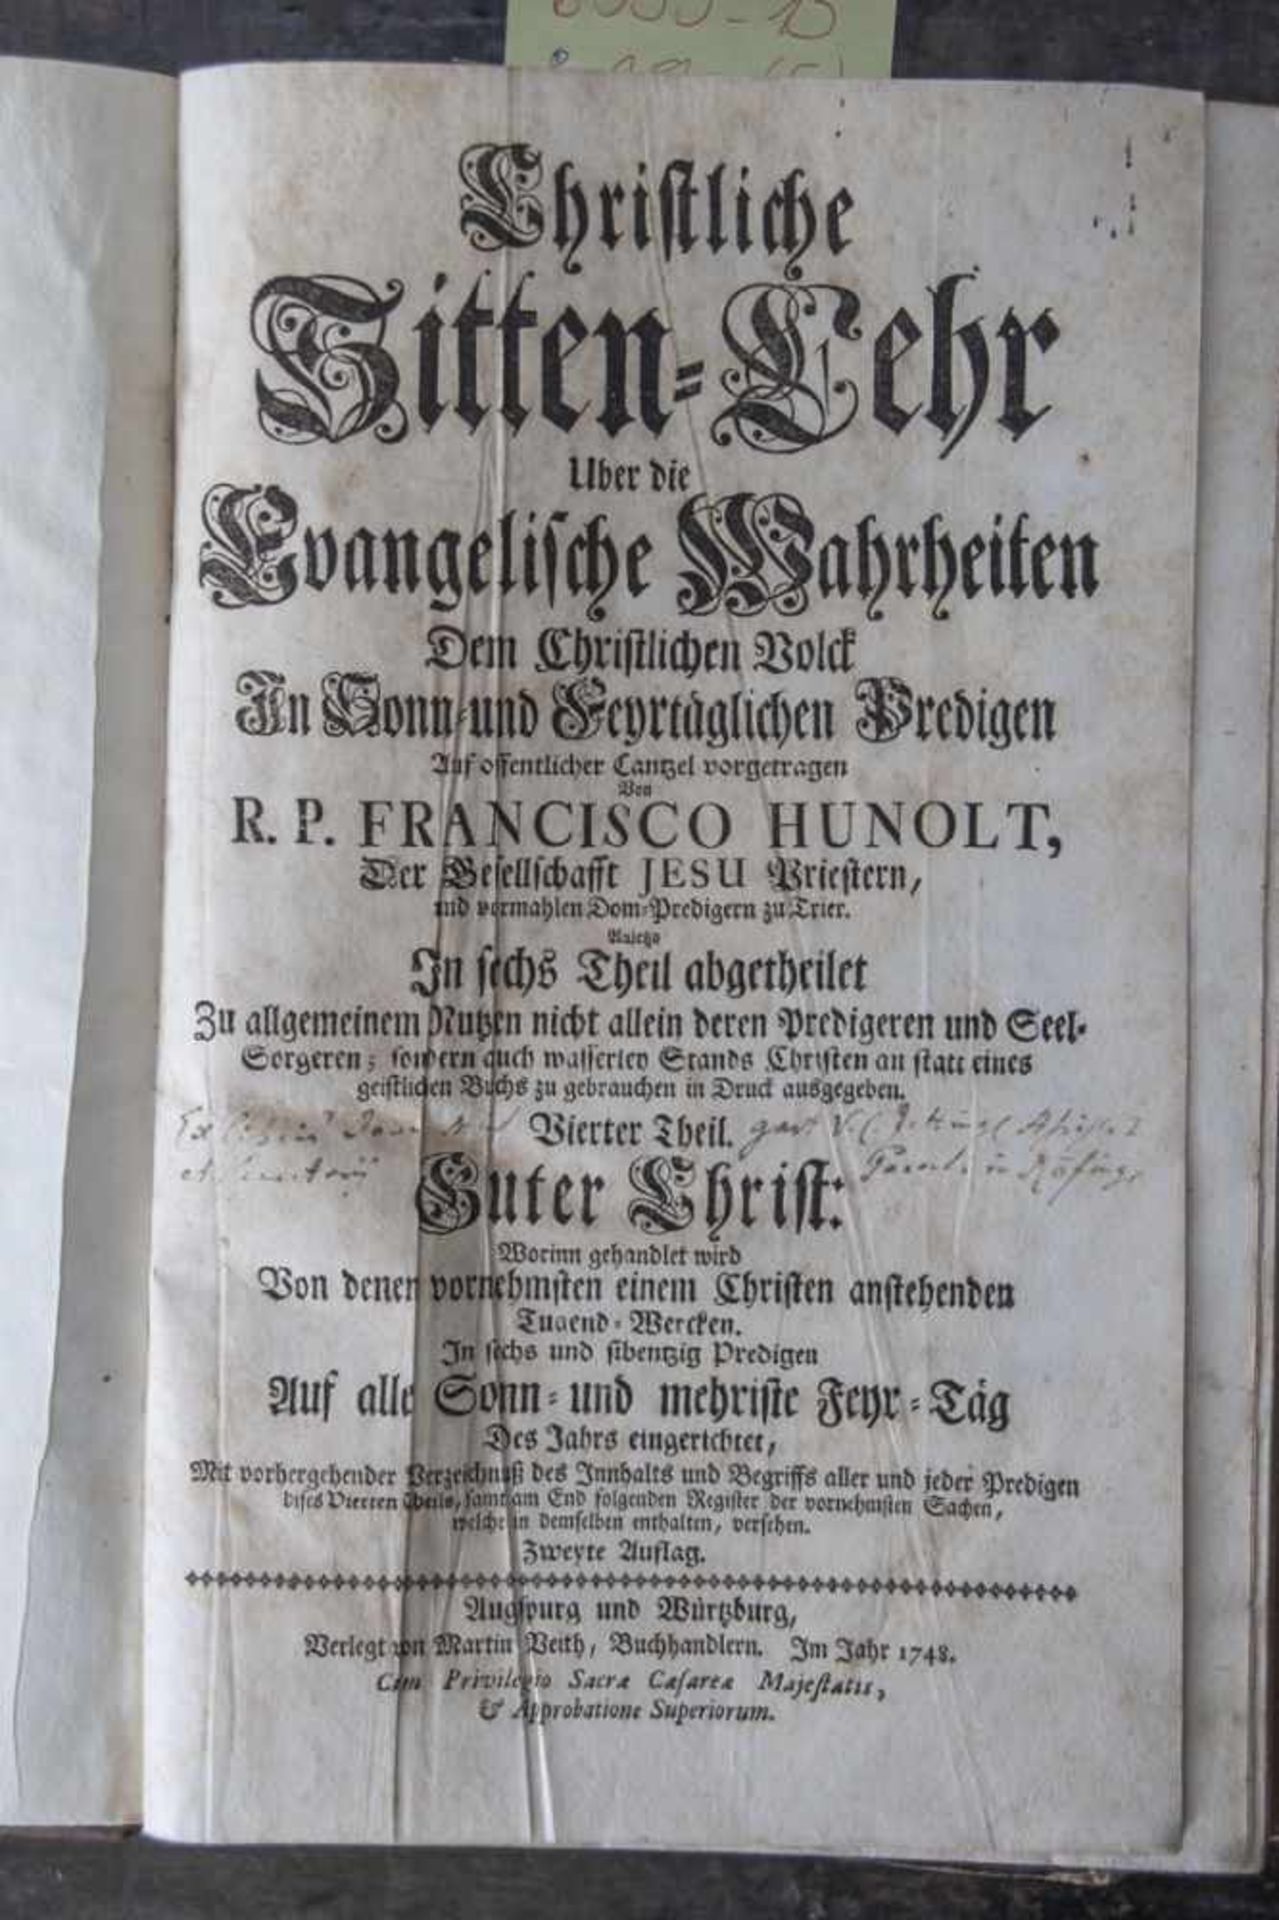 Christliche
Sitten-Lehr
Uber die
Evangelische Wahrheiten
Dem Christlichen Volck
In Sonn- und Feyrtäglichen Predigen
Auf offentlicher Cantzel vorgetragen
Von
R. P. FRANCISCO HUNOLT,
Der Gesellschafft JESU Priestern,
und vormahlen Dom-Predigern zu Trier.
Anietzo
In sechs Theil abgetheilet
Zu allgemeinem Nutzen nicht allein deren Predigeren und Seel-
Sorgeren; sondern auch wasserley Stands Christen an statt eines
geistlichen Buchs zu gebrauchen in Druck ausgegeben.
Vierter Theil.
Guter Christ:
Worinn gehandlet wird
Von denen vornehmsten einem Christen anstehenden
Tugend-Wercken.
In sechs und sibentzig Predigen
Auf alle Sonn- und mehriste Feyr-Täg
Des Jahrs eingerichtet,
Mit vorhergehender Verzeichnuß des Innhalts und Begriffs aller und jeder Predigen
dises Vierten Theils, samt am End folgenden Register der vornehmsten Sachen,
welche in demselben enthalten, versehen.
Zweyte Auflag.
Augspurg und Würtzburg,
Verlegt von Martin Veith, Buchhandlern. Im Jahr 1748.
Cum Privilegio Sacræ Cæsareæ Majestatis,
& Approbatione Superiorum.